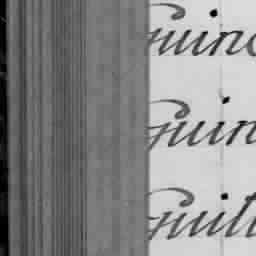 Guin
Guin
Guill